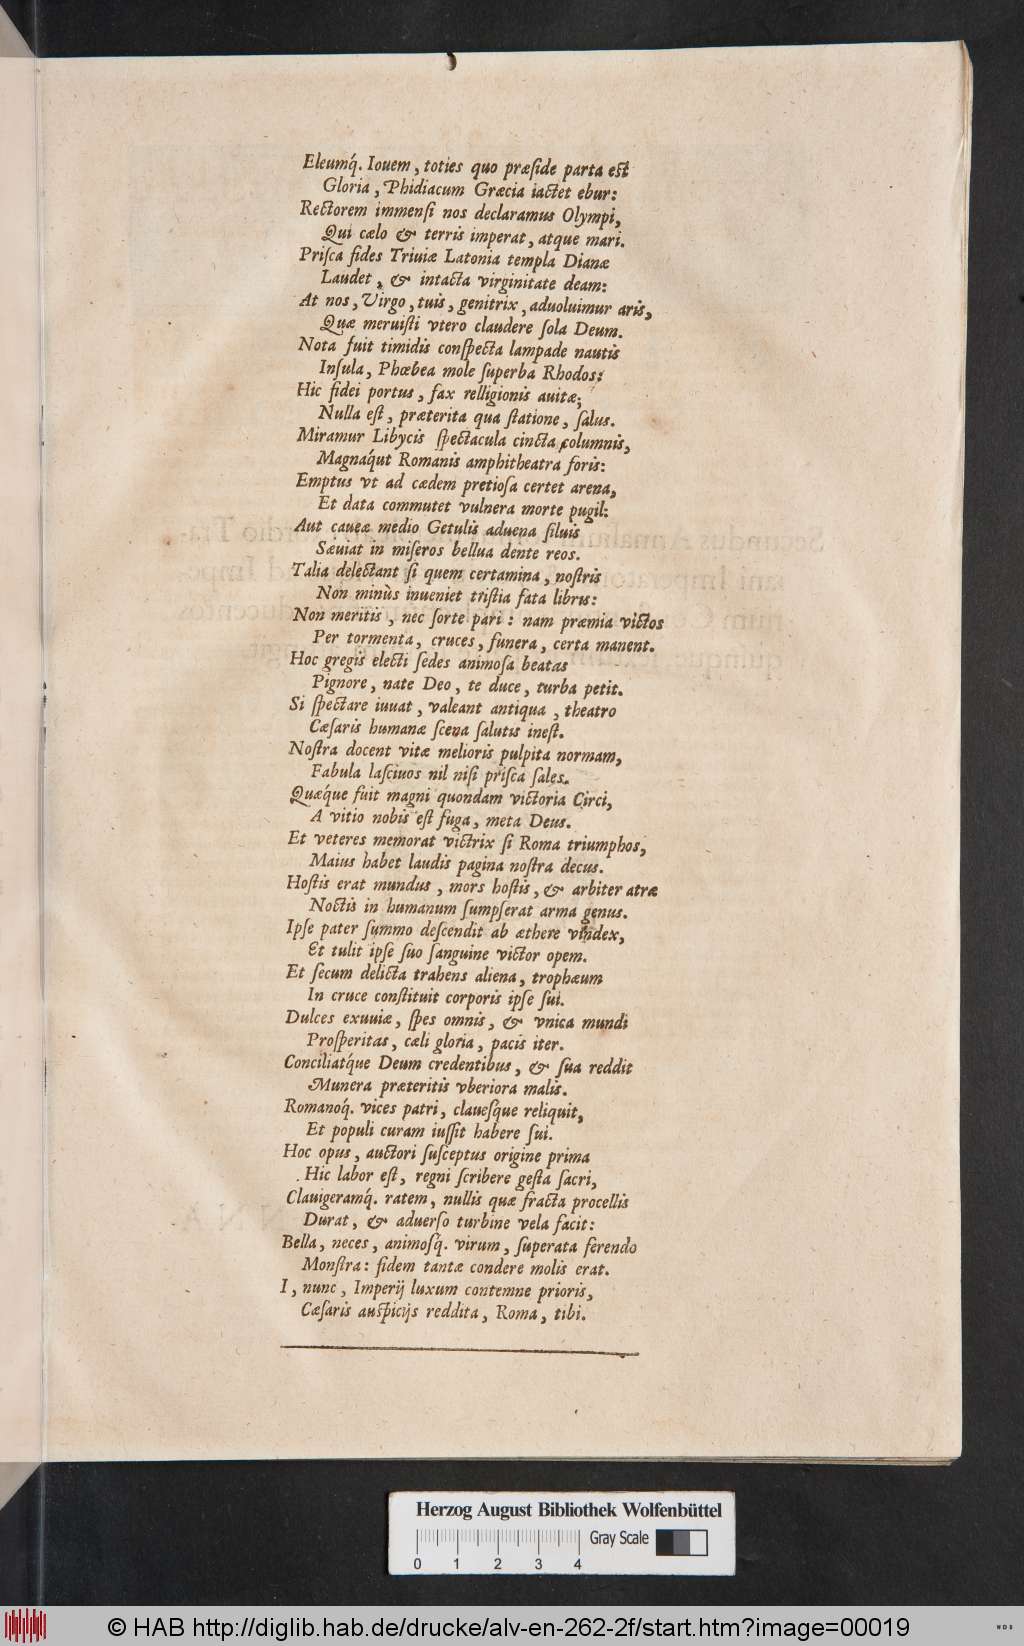 Eleumq́. Iouem, toties quo præſide parta eſt
Gloria, Phidiacum Græcia iactet ebur:
Rectorem immenſi nos declaramus Olympi,
Qui cælo & terris imperat, atque mari.
Priſca fides Triuiæ Latonia templa Dianæ
Laudet, & intacta virginitate deam:
At nos, Virgo, tuis, genitrix, aduoluimur aris,
Quæ meruiſti vtero claudere ſola Deum.
Nota fuit timidis conſpecta lampade nautis
Inſula, Phœbea mole ſuperba Rhodos:
Hic fidei portus, fax relligionis auitæ;
Nulla eſt, præterita qua ſtatione, ſalus.
Miramur Libycis ſpectacula cincta columnis,
Magnaq́ut Romanis amphitheatra foris:
Emptus vt ad cædem pretioſa certet arena,
Et data commutet vulnera morte pugil:
Aut caueæ medio Getulis aduena ſiluis
Sæuiat in miſeros bellua dente reos.
Talia delectant ſi quem certamina, noſtris
Non minùs inueniet triſtia fata libris:
Non meritis, nec ſorte pari: nam præmia victos
Per tormenta, cruces, funera, certa manent.
Hoc gregis electi ſedes animoſa beatas
Pignore, nate Deo, te duce, turba petit.
Si ſpectare iuuat, valeant antiqua, theatro
Cæſaris humanæ ſcena ſalutis ineſt.
Noſtra docent vitæ melioris pulpita normam,
Fabula laſciuos nil niſi priſca ſales.
Quæq́ue fuit magni quondam victoria Circi,
A vitio nobis eſt fuga, meta Deus.
Et veteres memorat victrix ſi Roma triumphos,
Maius habet laudis pagina noſtra decus.
Hoſtis erat mundus, mors hoſtis, & arbiter atræ
Noctis in humanum ſumpſerat arma genus.
Ipſe pater ſummo deſcendit ab æthere vindex,
Et tulit ipſe ſuo ſanguine victor opem.
Et ſecum delicta trahens aliena, trophæum
In cruce conſtituit corporis ipſe ſui.
Dulces exuuiæ, ſpes omnis, & vnica mundi
Proſperitas, cæli gloria, pacis iter.
Conciliatq́ue Deum credentibus, & ſua reddit
Munera præteritis vberiora malis.
Romanoq́. vices patri, claueſque reliquit,
Et populi curam iuſſit habere ſui.
Hoc opus, auctori ſuſceptus origine prima
Hic labor eſt, regni ſcribere geſta ſacri,
Clauigeramq́. ratem, nullis quæ fracta procellis
Durat, & aduerſo turbine vela facit:
Bella, neces, animoſq́. virum, ſuperata ferendo
Monſtra: fidem tantæ condere molis erat.
I, nunc, Imperij luxum contemne prioris,
Cæſaris auſpicijs reddita, Roma, tibi.
Herzog August Bibliothek Wolfenbüttel
Gray Scale
0 1 2 3 4
© HAB http://diglib.hab.de/drucke/alv-en-262-2f/start.htm?image=00019